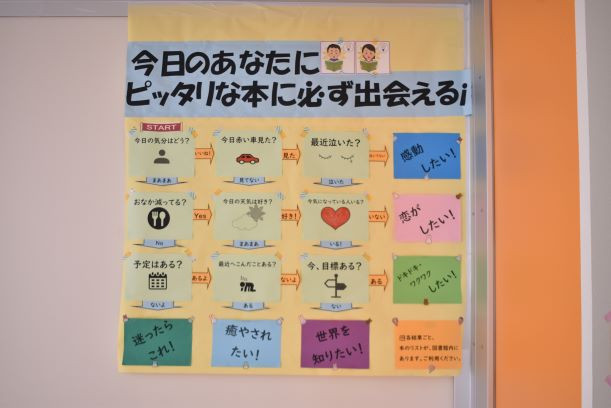 今日のあなたに
ピッタリな本に必ず出会える!
START
今日の気分はどう?
いいね!
今日赤い車見た?
見た
最近泣いた?
感動
したい!
まあまあ
見てない
泣いた
おなか減ってる?
Yes
今日の天気は好き?
好き!
今気になっている人いる?
いない
恋が
したい!
No
まあまあ
いる!
予定はある?
あるよ
最近へこんだことある?
ないよ
今、目標ある?
ある
ドキドキ・
ワクワク
したい!
ないよ
ある
ない
迷ったら
これ!
癒やされ
たい!
世界を
知りたい!
各結果ごと、
本のリストが、図書館内に
あります。ご利用ください。